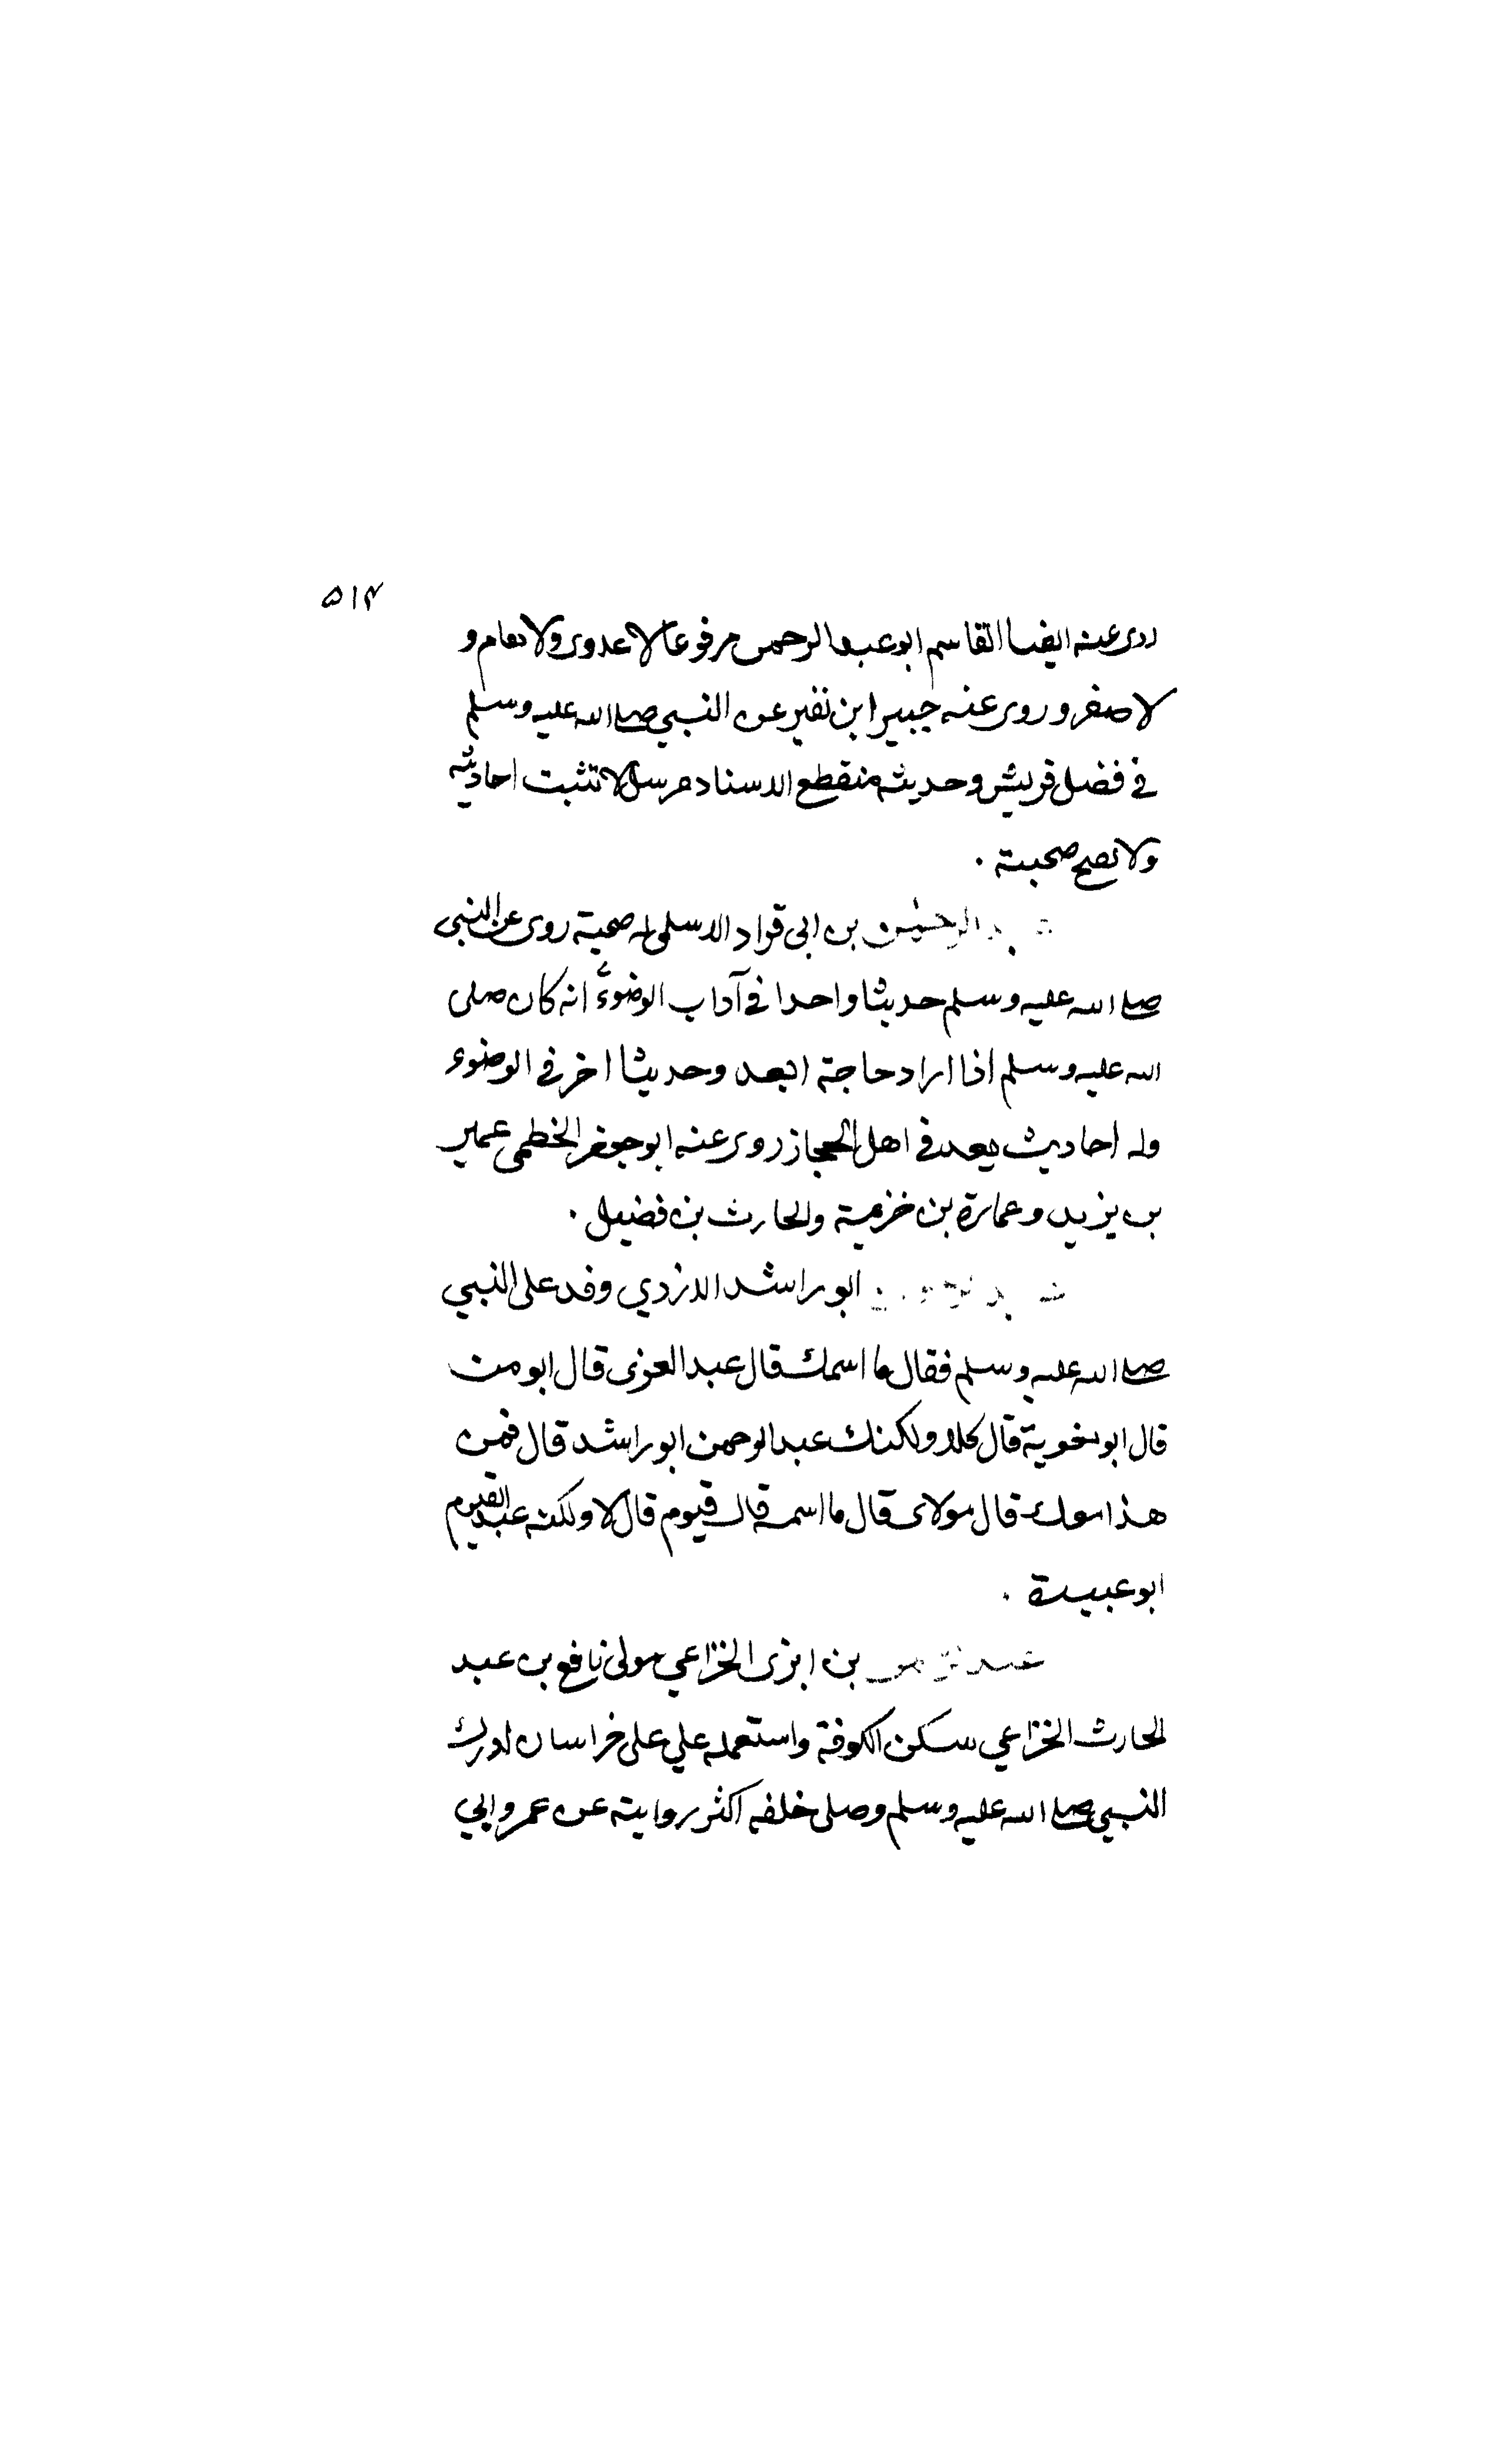 ۵۱۴
روى عنه ايضا القاسم ابو عبد الرحمن مرفوعا لا عدوى ولا هام و
لا صفر وروى عنه جبير ابن نفير عن النبي صلى الله عليه وسلم
في فضل قريش وحديثه منقطع الاسناد مرسل لا تثبت احاديثه
ولا تصح صحبته .
عبد الرحمن بن ابى قراد الاسلمى له صحبة روى عن النبى
صلى الله عليه وسلم حديثا واحدا في آداب الوضوء انه كان صلى
الله عليه وسلم اذا اراد حاجة ابعد وحديثا اخر في الوضوء
وله احاديث يعد في اهل الحجاز روى عنه ابو جعفر الخطمى عمير
بن يزيد وعمارة بن خزيمة والحارث بن فضيل .
عبد الرحمن ابو راشد الازدي وفد على النبي
صلى الله عليه وسلم فقال ما اسمك قال عبد العزى قال ابو من
قال ابو مغوية قال كلا ولكنك عبد الرحمن ابو راشد قال فمن
هذا معك قال مولاى قال ما اسمه قال قيوم قال لا ولكنه عبد القيوم
ابو عبيدة .
عبد الرحمن بن ابزى الخزاعي مولى نافع بن عبد
الحارث الخزاعي سكن الكوفة واستعمله علي على خراسان ادرك
النبي صلى الله عليه وسلم وصلى خلفه اكثر روايته عن عمر وابي